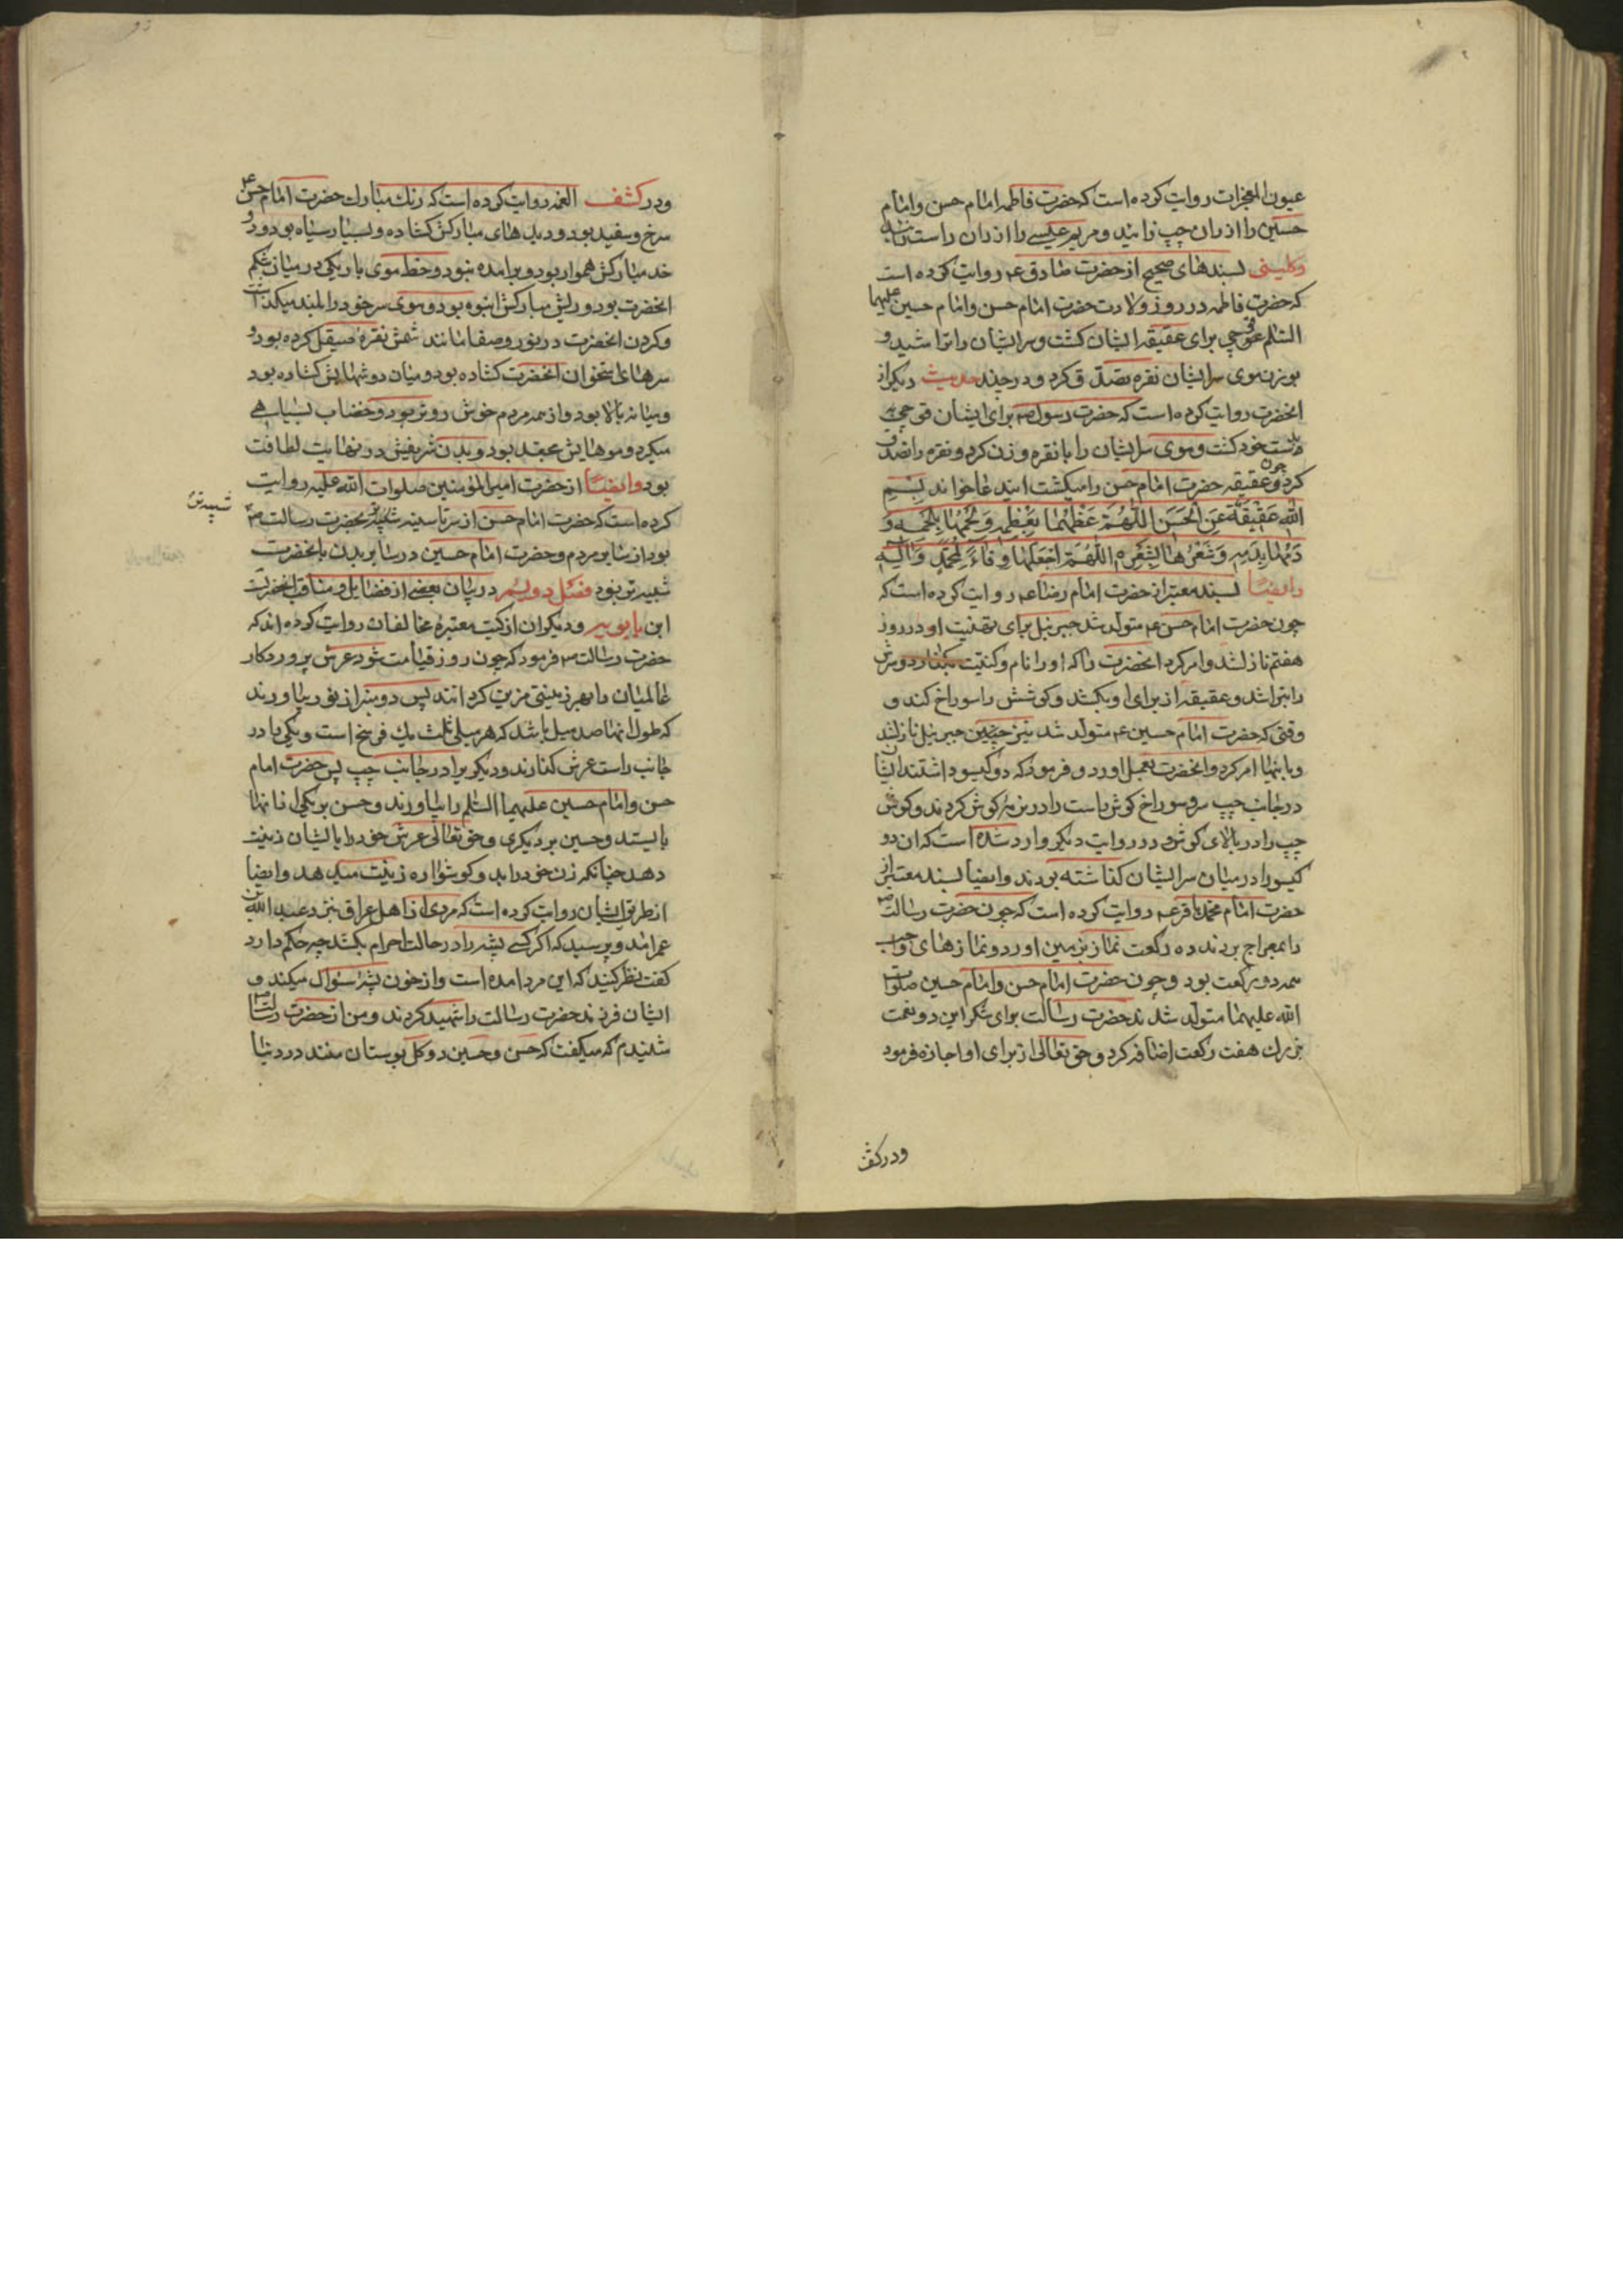 عیون المعجزات روایت کرده است که حضرت فاطمه امام حسن و امام
حسین را از ران چپ زائید و مریم عیسی را از ران راست
وکلینی بسندهای صحیح از حضرت صادق ع روایت کرده است
که حضرت فاطمه در روز ولادت حضرت امام حسن و امام حسین علیهما
السّلم قوچی برای عقیقه ایشان کشت و سر ایشان را تراشید و
بوزن موی سر ایشان نقره تصدّق کرد و در چند حدیث دیگر از
انحضرت روایت کرده است که حضرت رسول ص برای ایشان قوچی
بدست خود کشت و موی سر ایشان را با نقره وزن کرد و نقره را تصدّق
کرد و چون عقیقه حضرت امام حسن را میکشت این دعا خواند بِسْمِ
اللهِ عَقْیقَةٌ عَنِ الْحَسَنِ اللّهُمَّ عَظْمُهَا بِعَظْمِهِ وَ لَحْمُهَا بِلَحْمِهِ وَ
دَمُهَا بِدَمِهِ وَ شَعْرُهَا بِشَعْرِهِ اللّهُمَّ اجْعَلْهَا وِقَاءً لِمُحَمَّدٍ وَ آلِهِ
وایضاً بسند معتبر از حضرت امام رضا ع روایت کرده است که
چون حضرت امام حسن ع متولّد شد جبرئیل برای تهنیت او در روز
هفتم نازل شد و امر کرد انحضرت را که او را نام و کنیت بگذارد و سرش
را بتراشد و عقیقه از برای او بکشد و گوشش را سوراخ کند و
وقتی که حضرت امام حسین ع متولّد شد نیز چنین جبرئیل نازلشد
و باینها امر کرد و انحضرت بعمل اورد و فرمود که دو گیسو داشتند ایشان
در جانب چپ سر و سوراخ گوش راست را در نرمهٔ گوش کردند و گوش
چپ را در بالای گوش و در روایت دیگر وارد شده است که ان دو
گیسو را در میان سر ایشان گذاشته بودند وایضا بسند معتبر از
حضرت امام محمّد باقر ع روایت کرده است که چون حضرت رسالت ص
را بمعراج بردند ده رکعت نماز بزمین اورد و نمازهای
همه دو رکعت بود و چون حضرت امام حسن و امام حسین صلوات
الله علیهما متولّد شدند حضرت رسالت برای شکر این دو نعمت
بزرك هفت رکعت اضافه کرد و حق تعالی از برای او اجازه فرمود
ودر کشف
ودر کشف الغمه روایت کرده است که رنك مبارك حضرت امام حسن ع
سرخ و سفید بود و دیدهای مبارکش گشاده و بسیار سیاه بود و
خد مبارکش هموار بود و برامده نبود و خط موی باریکی در میان شکم
انحضرت بود و ریش مبارکش انبوه بود و موی سر خود را بلند میگذاشت
و گردن انحضرت در نور و صفا مانند شمش نقرهٔ صیقل کرده بود و
سرهای استخوان انحضرت گشاده بود و میان دوشهایش گشاده بود
و میانه بالا بود و از همه مردم خوش روتر بود و خضاب بسیاهی
میکرد و موهایش مجعد بود و بدن شریفش در نهایت لطافت
بود وایضاً از حضرت امیر المؤمنین صلوات الله علیه روایت
کرده است که حضرت امام حسن از سر تا سینه بحضرت رسالت ص
شبیه‌تر
بود از سایر مردم و حضرت امام حسین در سایر بدن بانحضرت
شبیه‌تر بود فصل دویم در بیان بعضی از فضایل و مناقب انحضرتست
ابن بابویه و دیگران از کتب معتبرهٔ مخالفان روایت کرده‌اند که
حضرت رسالت ص فرمود که چون روز قیامت شود عرش پروردکار
عالمیان را بهر زینتی مزین گردانند پس دو منبر از نور بیاورند
که طول انها صد میل باشد که هر میلی ثلث یك فرسخ است و یکی را در
جانب راست عرش گذارند و دیگریرا در جانب چپ پس حضرت امام
حسن و امام حسین علیهما السّلم را بیاورند و حسن بر یکی از انها
بایستد و حسین بر دیگری و حق تعالی عرش خود را بایشان زینت
دهد چنانکه زن خود را بدو گوشواره زینت میدهد وایضا
از طریق ایشان روایت کرده است که مردی از اهل عراق نزد عبد الله بن
عمر امد و پرسید که اگر کسی پشه را در حالت احرام بکشد چه حکم دارد
گفت نظر کنید که این مرد امده است و از خون پشه سؤال میکند و
ایشان فرزند حضرت رسالت را شهید کردند و من از حضرت رسالت ص
شنیدم که میگفت که حسن و حسین دو گل بوستان منند در دنیا